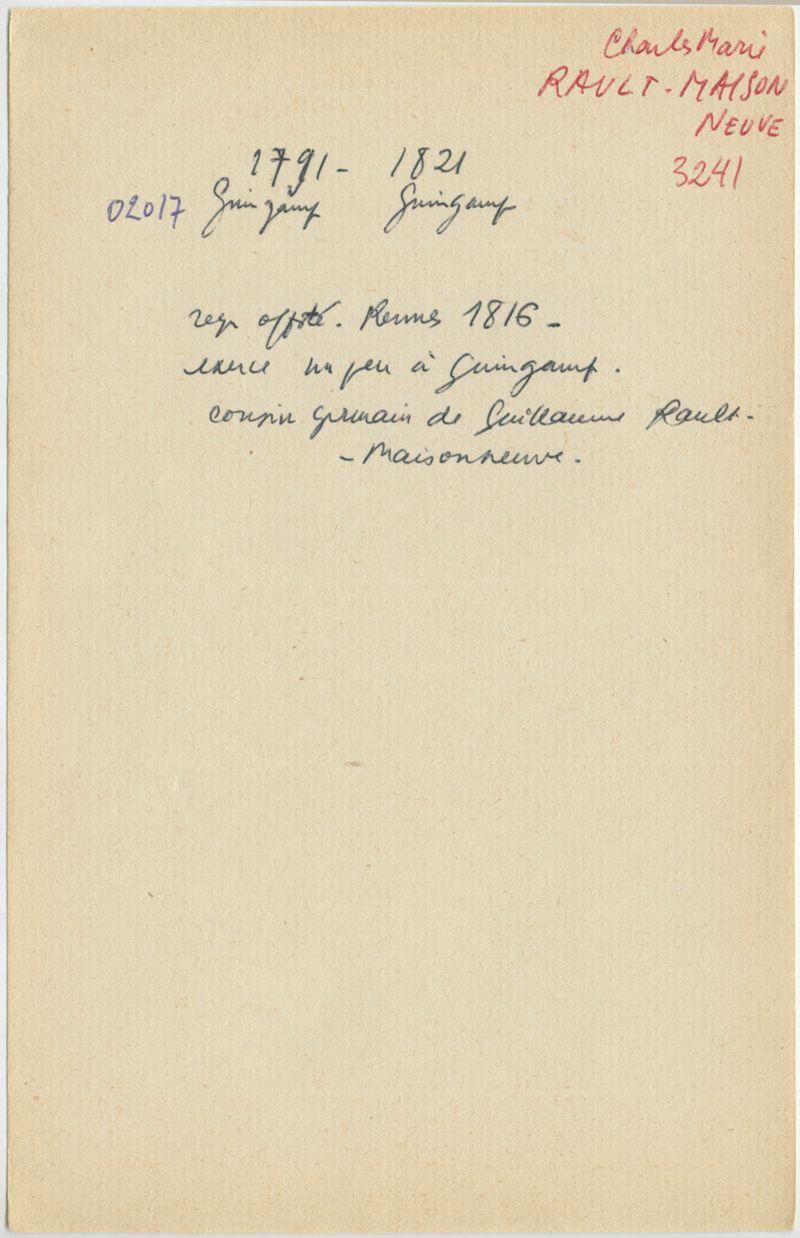 Charles Marie
RAULT - MAISON
NEUVE
3241
1791 - 1821
02017 Guingamp Guingamp
reçu offsté. Rennes 1816 -
exerce un peu à Guingamp.
cousin germain de Guillaume Rault-
- Maisonneuve.